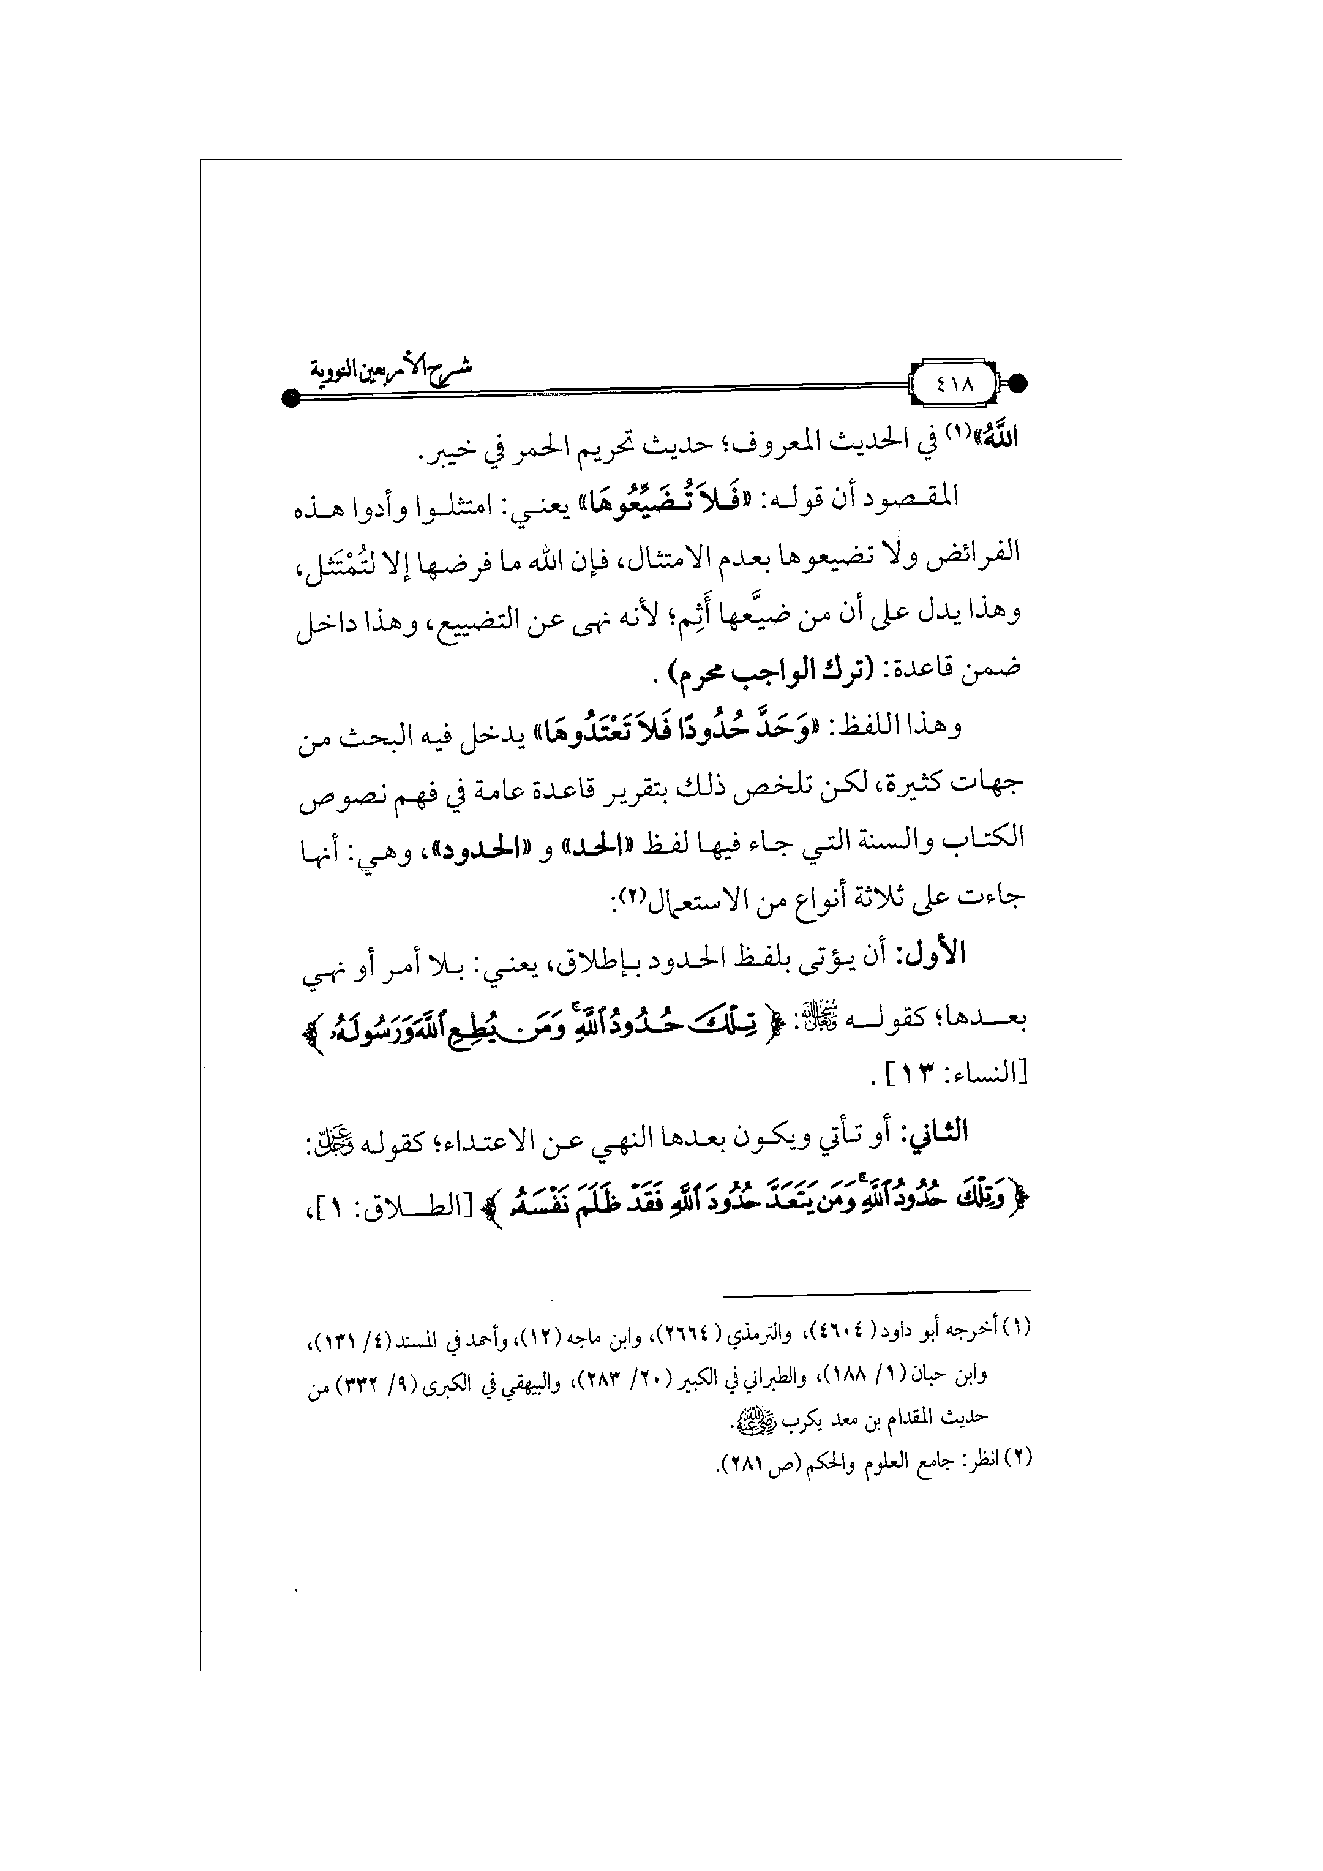 شرح الأربعين النووية
٤١٨
اللَّهُ»(١) في الحديث المعروف؛ حديث تحريم الحمر في خيبر.
المقصود أن قوله: «فَلاَ تُضَيِّعُوهَا» يعني: امتثلوا وأدوا هذه
الفرائض ولا تضيعوها بعدم الامتثال، فإن الله ما فرضها إلا لتُمْتَثل،
وهذا يدل على أن من ضيَّعها أَثِم؛ لأنه نهى عن التضييع، وهذا داخل
ضمن قاعدة: (ترك الواجب محرم) .
وهذا اللفظ: «وَحَدَّ حُدُودًا فَلاَ تَعْتَدُوهَا» يدخل فيه البحث من
جهات كثيرة، لكن تلخص ذلك بتقرير قاعدة عامة في فهم نصوص
الكتاب والسنة التي جاء فيها لفظ «الحد» و «الحدود»، وهي: أنها
جاءت على ثلاثة أنواع من الاستعمال(٢):
الأول: أن يؤتى بلفظ الحدود بإطلاق، يعني: بلا أمر أو نهي
بعدها؛ كقوله ﷻ: ﴿تِلْكَ حُدُودُ ٱللَّهِۚ وَمَن يُطِعِ ٱللَّهَ وَرَسُولَهُۥ﴾
[النساء: ١٣] .
الثاني: أو تأتي ويكون بعدها النهي عن الاعتداء؛ كقوله عَزَّوَجَلَّ:
﴿وَتِلْكَ حُدُودُ ٱللَّهِۚ وَمَن يَتَعَدَّ حُدُودَ ٱللَّهِ فَقَدْ ظَلَمَ نَفْسَهُۥ﴾ [الطلاق: ١]،
(١) أخرجه أبو داود (٤٦٠٤)، والترمذي (٢٦٦٤)، وابن ماجه (١٢)، وأحمد في المسند (٤/ ١٣١)،
وابن حبان (١/ ١٨٨)، والطبراني في الكبير (٢٠/ ٢٨٣)، والبيهقي في الكبرى (٩/ ٣٣٢) من
حديث المقدام بن معد يكرب رضي الله عنه.
(٢) انظر: جامع العلوم والحكم (ص ٢٨١).